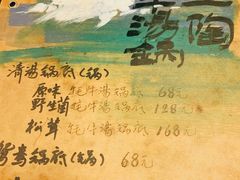 陶
湯
清湯鍋底(鍋)
原味牦牛湯鍋底 68元
野生菌牦牛湯鍋底 128元
松茸牦牛湯鍋底 168元
鴛鴦鍋底(鍋) 68元